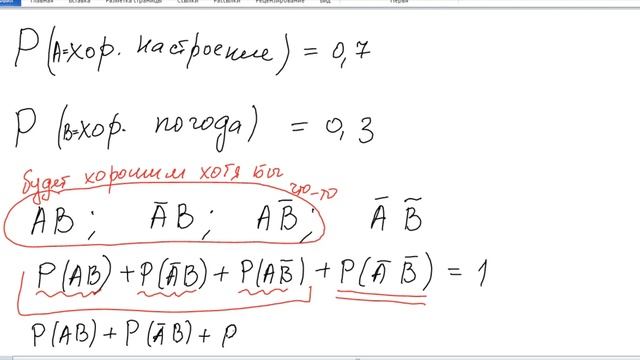 Главная Вставка Разметка страницы Ссылки Рассылки Рецензирование Вид
P(A=хор. настроение) = 0,7
P (B=хор. погода) = 0,3
будет хорошим хотя бы что-то
AB; A̅B; AB̅; A̅ B̅
P(AB) + P(A̅B) + P(AB̅) + P(A̅ B̅) = 1
P(AB) + P(A̅B) + P